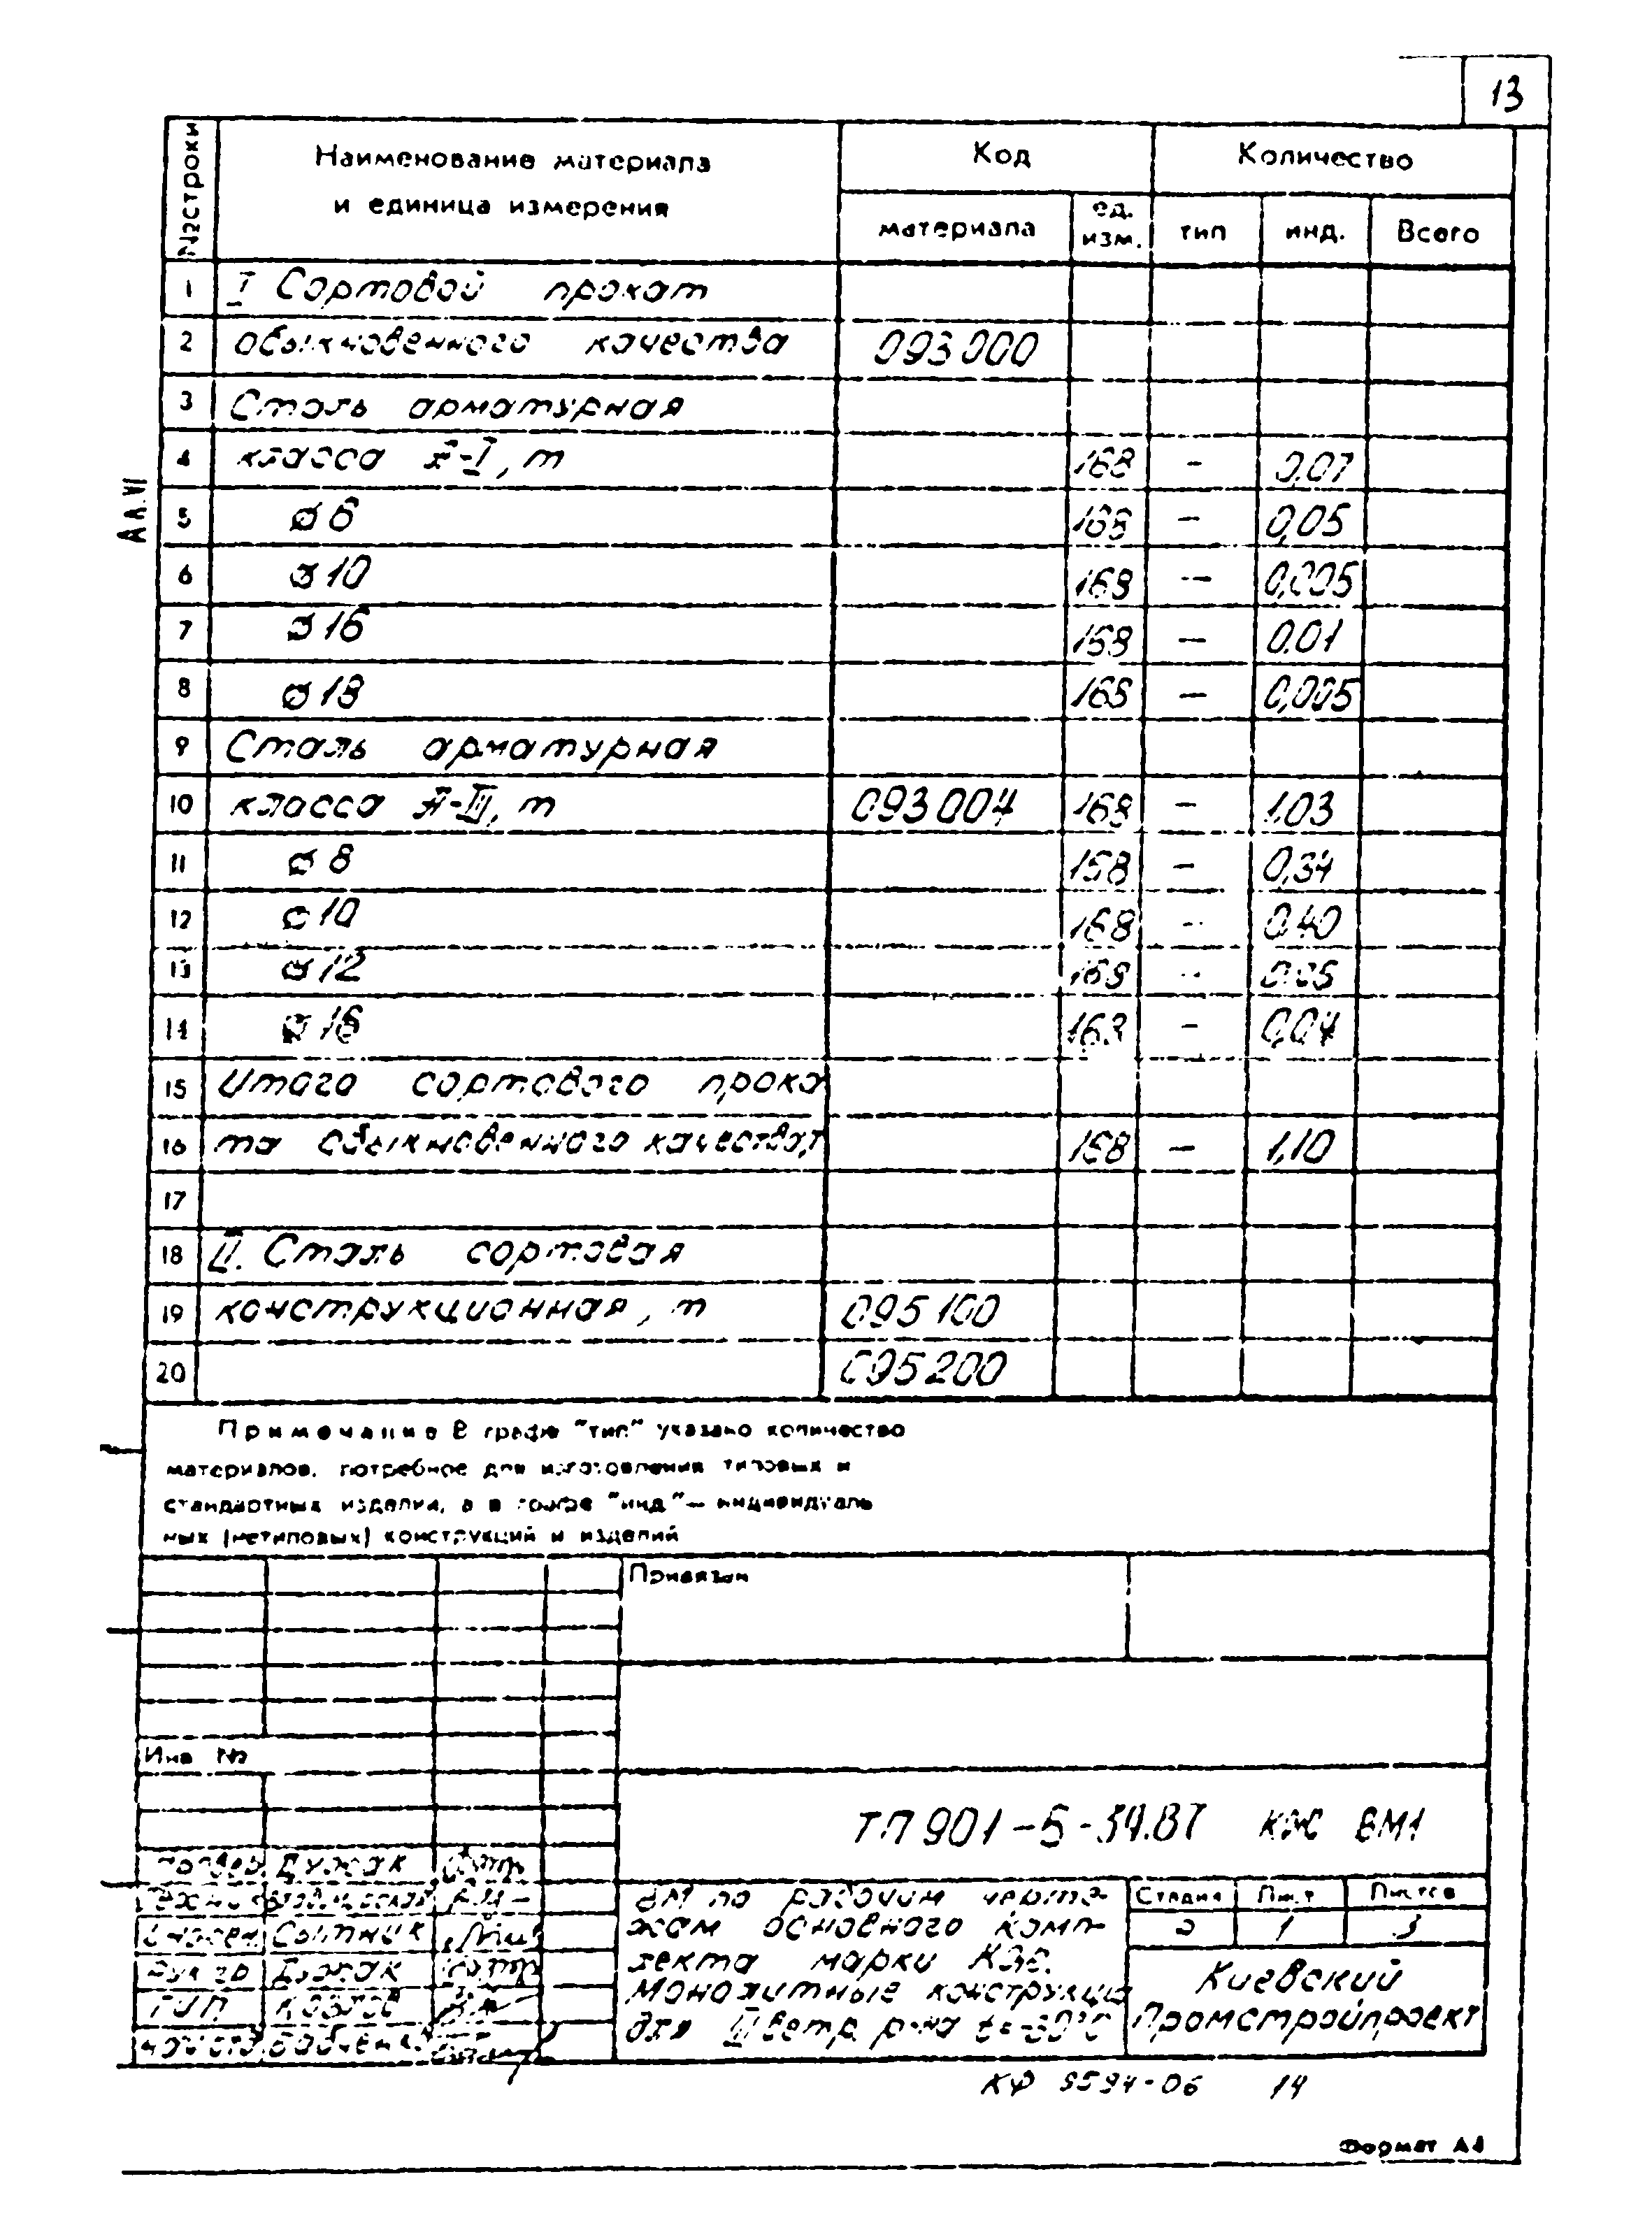 13
Ал.VI
№ строки | Наименование материала и единица измерения | Код | Количество
материала | ед. изм. | тип | инд. | Всего
1 I Сортовой прокат
2 обыкновенного качества 093000
3 Сталь арматурная
4 класса А-I, т 168 – 0,07
5 ⌀6 168 – 0,05
6 ⌀10 168 – 0,005
7 ⌀16 168 – 0.01
8 ⌀18 168 – 0,005
9 Сталь арматурная
10 класса А-III, т 093004 168 – 1,03
11 ⌀8 168 – 0,34
12 ⌀10 168 – 0,40
13 ⌀12 168 –
14 ⌀16 168 – 0,04
15 Итого сортового прока
16 та обыкновенного качества, т 168 – 1,10
17
18 II. Сталь сортовая
19 конструкционная, т 095100
20 095200
Примечание В графе "тип" указано количество
материалов, потребное для изготовления типовых и
стандартных изделий, а в графе "инд." – индивидуаль
ных (нетиповых) конструкций и изделий
Привязан
Инв №
ТП 901-5-34.87 КЖ ВМ1
Дужак
Сотник
Рук гр Дужак
ГИП Козлов
ВМ по рабочим черте-
жам основного комп-
лекта марки КЖ.
Монолитные конструкции
для III ветр. р-на t=-30°C
Стадия Лист Листов
1 3
Киевский
Промстройпроект
КФ 9594-06 14
Формат А4